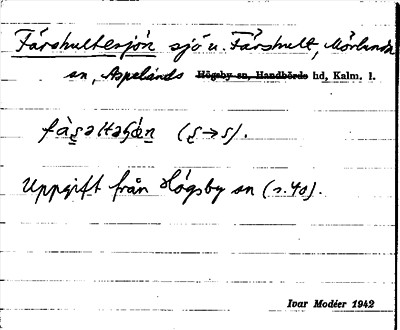 Fårshultesjön sjö u. Fårshult, Mörlunda
sn, Aspelands Högsby sn, Handbörds hd, Kalm. l.
(s→s).
Uppgift från Högsby sn (s. 40).
Ivar Modéer 1942